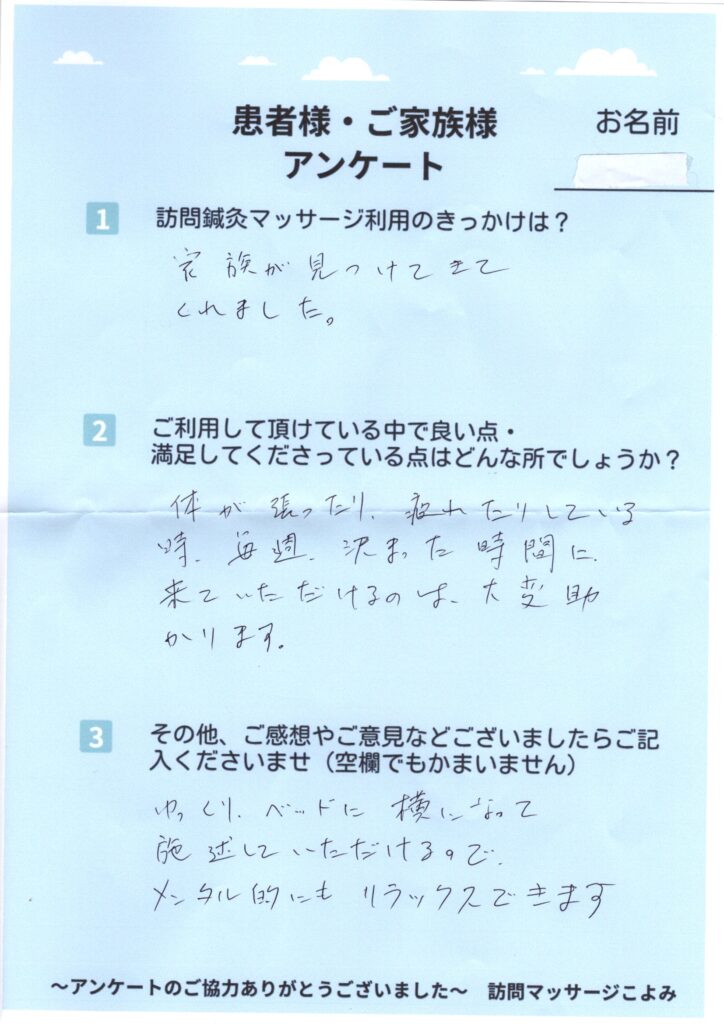 患者様・ご家族様
アンケート
お名前
1 訪問鍼灸マッサージ利用のきっかけは？
家族が見つけてきて
くれました。
2 ご利用して頂けている中で良い点・
満足してくださっている点はどんな所でしょうか？
体が張ったり、疲れたりしている
時、毎週、決まった時間に、
来ていただけるのは、大変助
かります。
3 その他、ご感想やご意見などございましたらご記
入くださいませ（空欄でもかまいません）
ゆっくり、ベッドに横になって
施述していただけるので、
メンタル的にもリラックスできます
～アンケートのご協力ありがとうございました～ 訪問マッサージこよみ